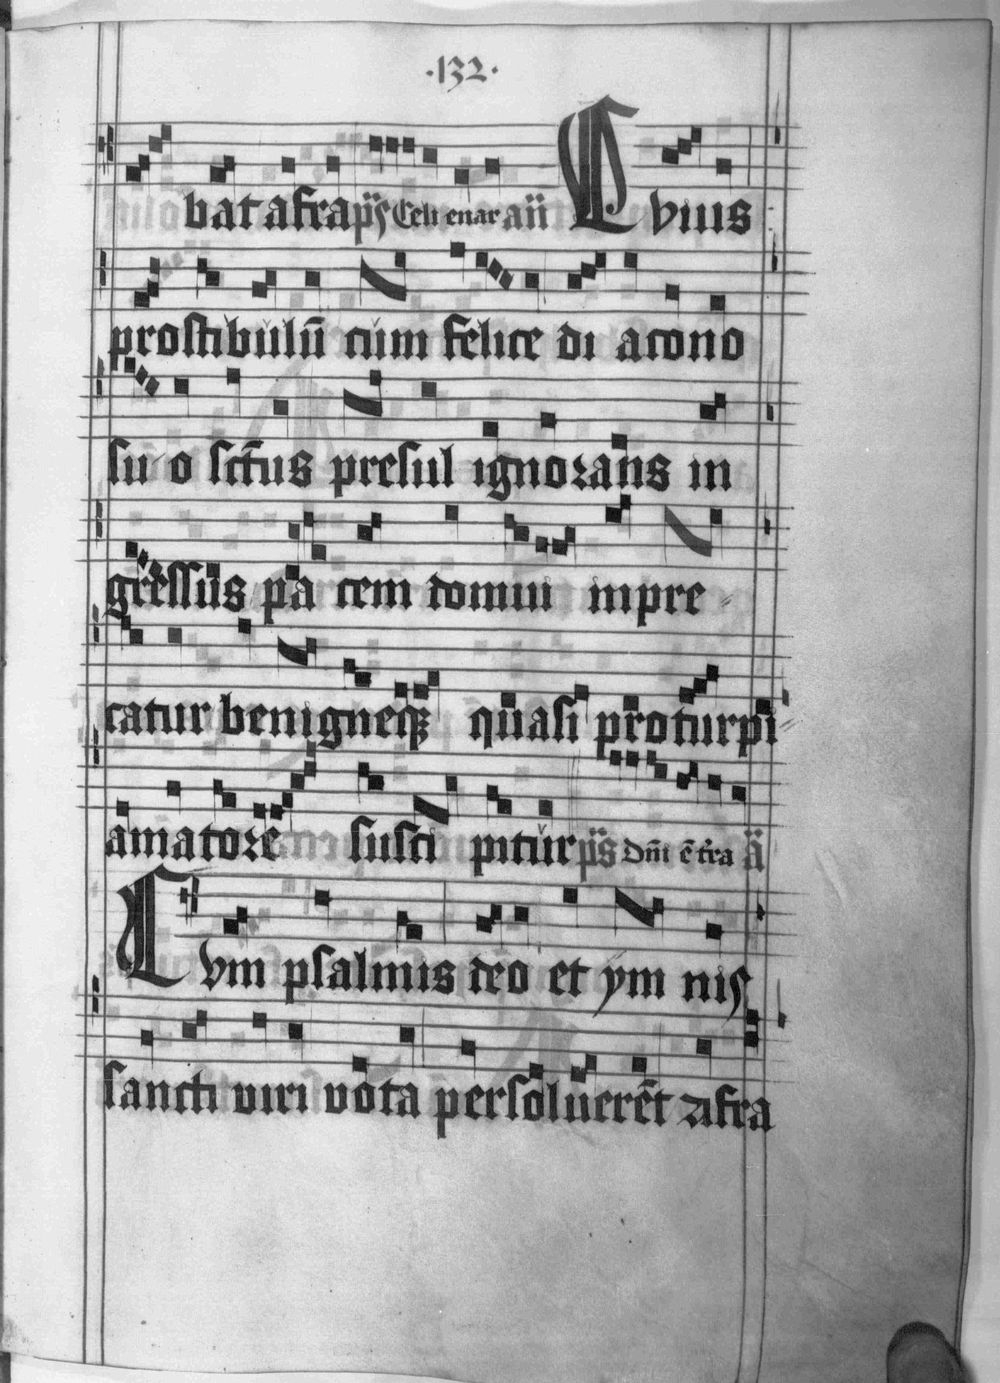 ·132·
bat afra ps Celi enar añ Cuius
prostibulū cum felice di acono
su o sctus presul ignorans in
gressus pa cem domini inpre
catur benigneqȝ quasi pro turpi
amatore susci pitur ps Dnī ē t̄ra a
Cum psalmis deo et ym nis
sancti viri vota persoluerēt afra